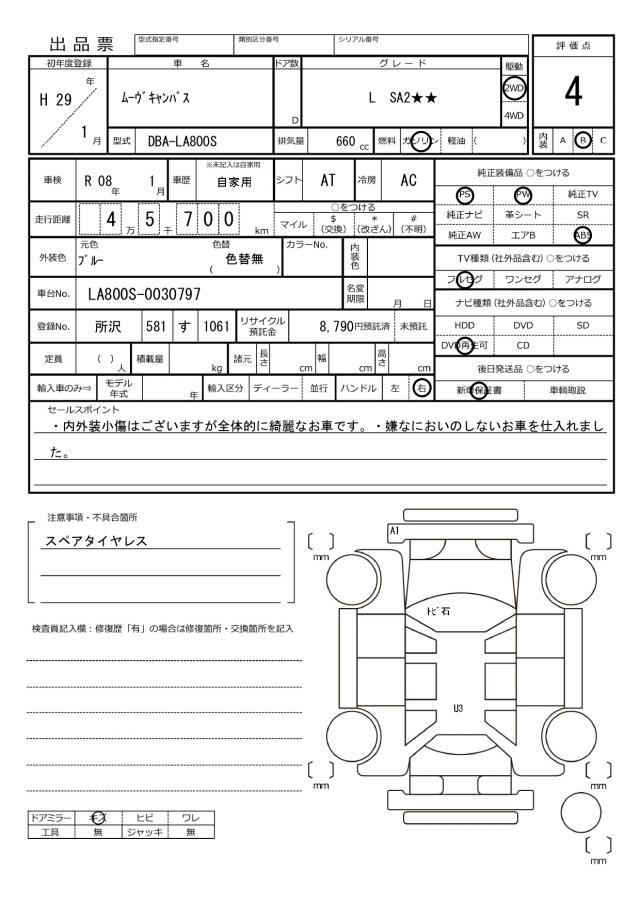 出品票
型式指定番号 類別区分番号 シリアル番号
初年度登録 車 名 ドア数 グレード 駆動 評価点
H 29 年 1 月 ムーヴキャンバス D L SA2★★ 2WD 4WD 4
型式 DBA-LA800S 排気量 660 cc 燃料 ガソリン 軽油 ( ) 内装 A B C
車検 R 08 年 1 月 車歴 ※未記入は自家用 自家用 シフト AT 冷房 AC
純正装備品 ○をつける
PS PW 純正TV
純正ナビ 革シート SR
純正AW エアB ABS
走行距離 4 万 5 千 7 0 0 km ○をつける マイル $ (交換) * (改ざん) # (不明)
外装色 元色 ブルー 色替 ( 色替無 ) カラーNo. 内装色
TV種類 (社外品含む) ○をつける
フルセグ ワンセグ アナログ
車台No. LA800S-0030797 名変期限 月 日
ナビ種類 (社外品含む) ○をつける
HDD DVD SD
DVD再生可 CD
登録No. 所沢 581 す 1061 リサイクル預託金 8,790円預託済 未預託
定員 ( ) 人 積載量 kg 諸元 長さ cm 幅 cm 高さ cm
後日発送品 ○をつける
新車保証書 車輌取説
輸入車のみ⇒ モデル年式 年 輸入区分 ディーラー 並行 ハンドル 左 右
セールスポイント
・内外装小傷はございますが全体的に綺麗なお車です。・嫌なにおいのしないお車を仕入れまし
た。
注意事項・不具合箇所
スペアタイヤレス
検査員記入欄：修復歴「有」の場合は修復箇所・交換箇所を記入
A1
〔 〕 mm
〔 〕 mm
トビ石
U3
〔 〕 mm
〔 〕 mm
〔 〕 mm
ドアミラー キズ ヒビ ワレ
工具 無 ジャッキ 無